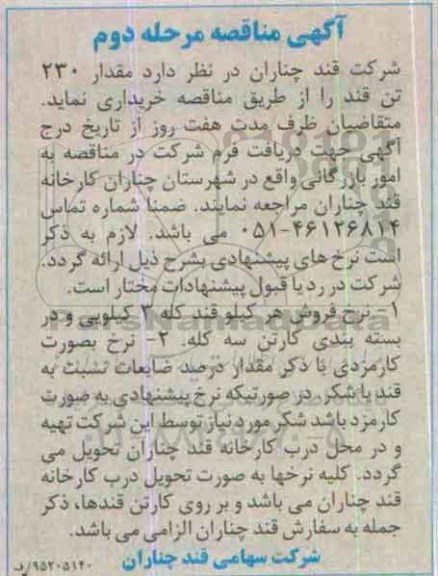 آگهی مناقصه مرحله دوم
شرکت قند چناران در نظر دارد مقدار ۲۳۰
تن قند را از طریق مناقصه خریداری نماید.
متقاضیان ظرف مدت هفت روز از تاریخ درج
آگهی جهت دریافت فرم شرکت در مناقصه به
امور بازرگانی واقع در شهرستان چناران کارخانه
قند چناران مراجعه نمایند. ضمنا شماره تماس
۰۵۱-۴۶۱۲۶۸۱۴ می باشد. لازم به ذکر
است نرخ های پیشنهادی بشرح ذیل ارائه گردد.
شرکت در رد یا قبول پیشنهادات مختار است.
۱- نرخ فروش هر کیلو قند کله ۳ کیلویی و در
بسته بندی کارتن سه کله. ۲- نرخ بصورت
کارمزدی با ذکر مقدار درصد ضایعات نسبت به
قند یا شکر. در صورتیکه نرخ پیشنهادی به صورت
کارمزد باشد شکر مورد نیاز توسط این شرکت تهیه
و در محل درب کارخانه قند چناران تحویل می
گردد. کلیه نرخها به صورت تحویل درب کارخانه
قند چناران می باشد و بر روی کارتن قندها، ذکر
جمله به سفارش قند چناران الزامی می باشد.
شرکت سهامی قند چناران
۹۵۲۰۵۱۴۰/ر
ParsNamadData